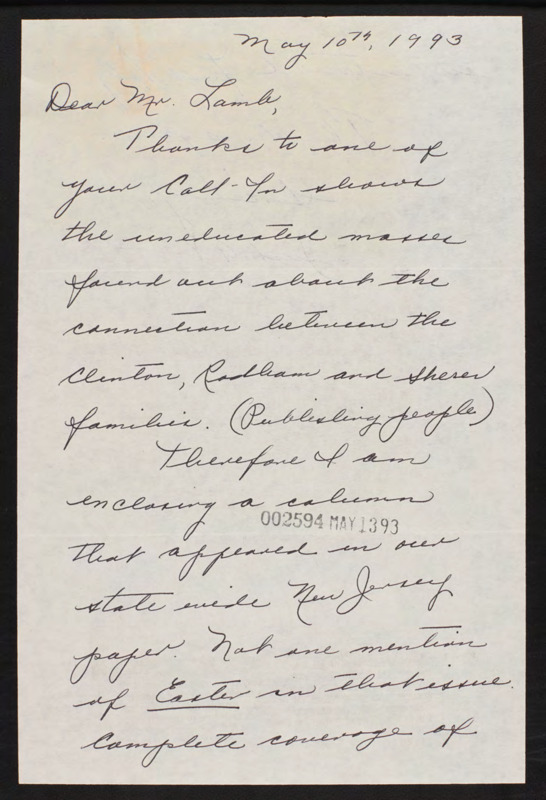 May 10th, 1993
Dear Mr. Lamb,
Thanks to one of
your Call-In shows
the uneducated masses
found out about the
connection between the
Clinton, Rodham and Sherer
families. (Publishing people)
Therefore I am
enclosing a column
002594 MAY 13 93
that appeared in our
state wide New Jersey
paper. Not one mention
of Easter in that issue.
Complete coverage of